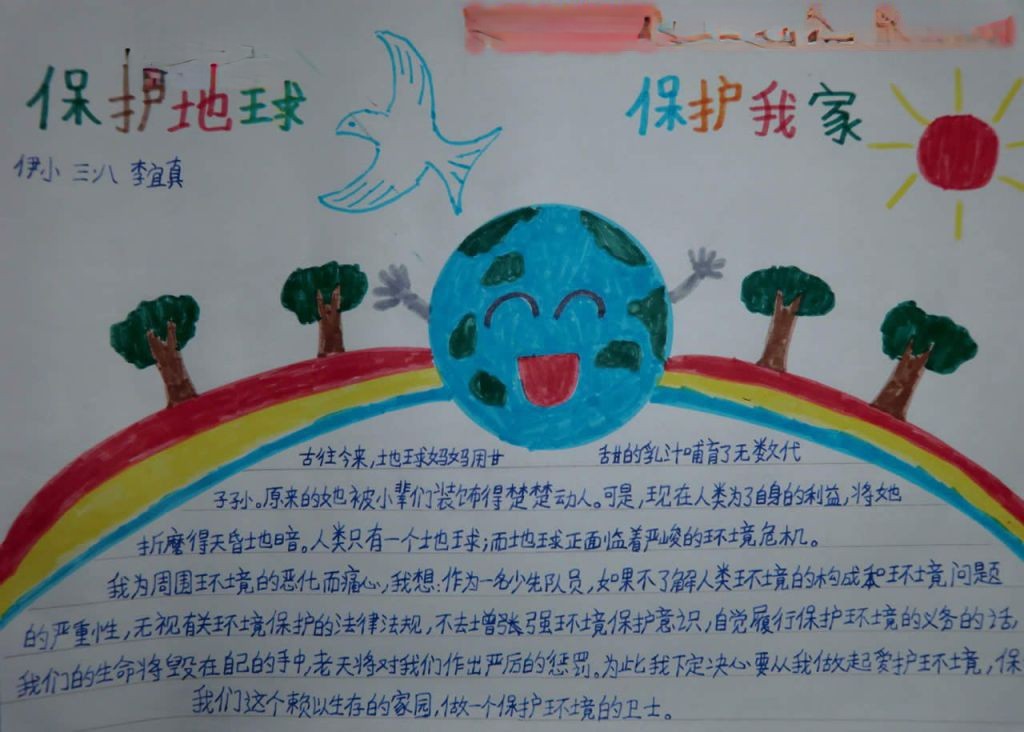 保护地球
保护我家
伊小 三八 李宜真
古往今来,地球妈妈用甘 甜的乳汁哺育了无数代
子孙。原来的她被小辈们装饰得楚楚动人。可是,现在人类为了自身的利益,将她
折磨得天昏地暗。人类只有一个地球;而地球正面临着严峻的环境危机。
我为周围环境的恶化而痛心,我想:作为一名少先队员,如果不了解人类环境的构成和环境问题
的严重性,无视有关环境保护的法律法规,不去增强环境保护意识,自觉履行保护环境的义务的话,
我们的生命将毁在自己的手中,老天将对我们作出严厉的惩罚。为此我下定决心要从我做起爱护环境,保
我们这个赖以生存的家园,做一个保护环境的卫士。